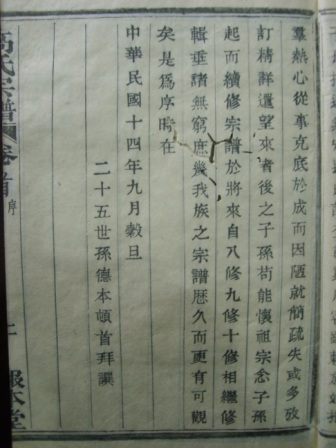 羣熱心從事克底於成而因陋就簡疏失或多攷
訂精詳還望來者後之子孫苟能懷祖宗念子孫
起而續修宗譜於將來自八修九修十修相繼修
輯垂諸無窮庶幾我族之宗譜歷久而更有可觀
矣是爲序時在
中華民國十四年九月穀旦
二十五世孫德本頓首拜譔
高氏宗譜 卷首 序
報本堂